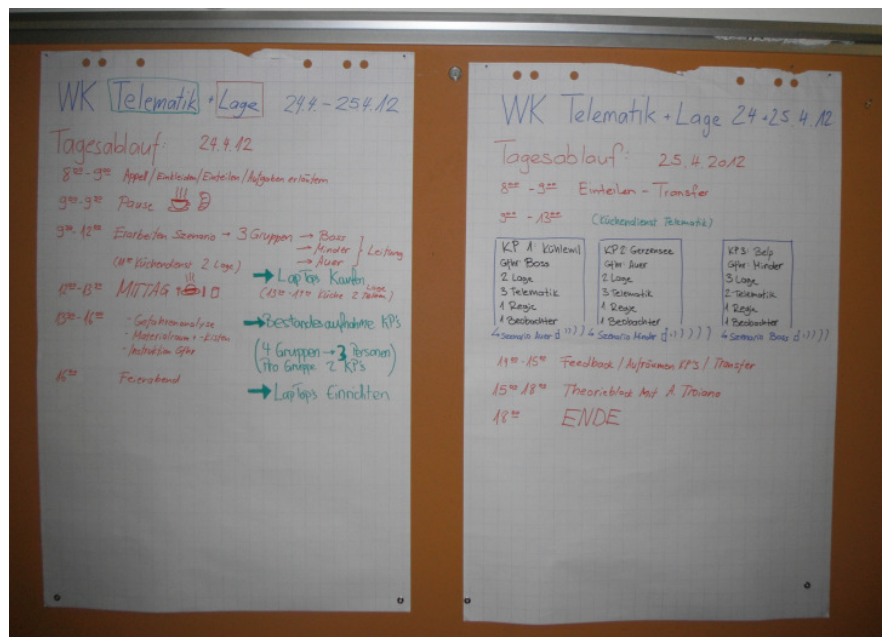 WK Telematik + Lage 24.4. - 25.4.12
Tagesablauf: 24.4.12
8⁰⁰ - 9⁰⁰ Appell / Einkleiden / Einteilen / Aufgaben erläutern
9⁰⁰ - 9³⁰ Pause
9³⁰ - 12⁰⁰ Erarbeiten Szenario → 3 Gruppen → Boss
→ Minder
→ Auer
Leitung
(11⁰⁰ Küchendienst 2 Lage)
12⁰⁰ - 13⁰⁰ MITTAG
13⁰⁰ - 16⁰⁰
- Gefahrenanalyse
- Materialraum + -Kisten
- Instruktion Gfhr
16⁰⁰ Feierabend
→ LapTops Kaufen
→ Bestandesaufnahme KP's
(4 Gruppen → 3 Personen)
Pro Gruppe 2 KP's
→ LapTops Einrichten
WK Telematik + Lage 24 + 25.4.12
Tagesablauf: 25.4.2012
8⁰⁰ - 9⁰⁰ Einteilen - Transfer
9⁰⁰ - 13⁰⁰ (Küchendienst Telematik)
KP 1: Kühlewil
Gfhr: Boss
2 Lage
3 Telematik
1 Regie
1 Beobachter
↳ Szenario Auer
KP 2: Gerzensee
Gfhr: Auer
2 Lage
3 Telematik
1 Regie
1 Beobachter
↳ Szenario Minder
KP 3: Belp
Gfhr: Minder
3 Lage
2 Telematik
1 Regie
1 Beobachter
↳ Szenario Boss
14⁰⁰ - 15⁰⁰ Feedback / Aufräumen KP's / Transfer
15⁰⁰ 18⁰⁰ Theorieblock Mit A. Troiano
18⁰⁰ ENDE